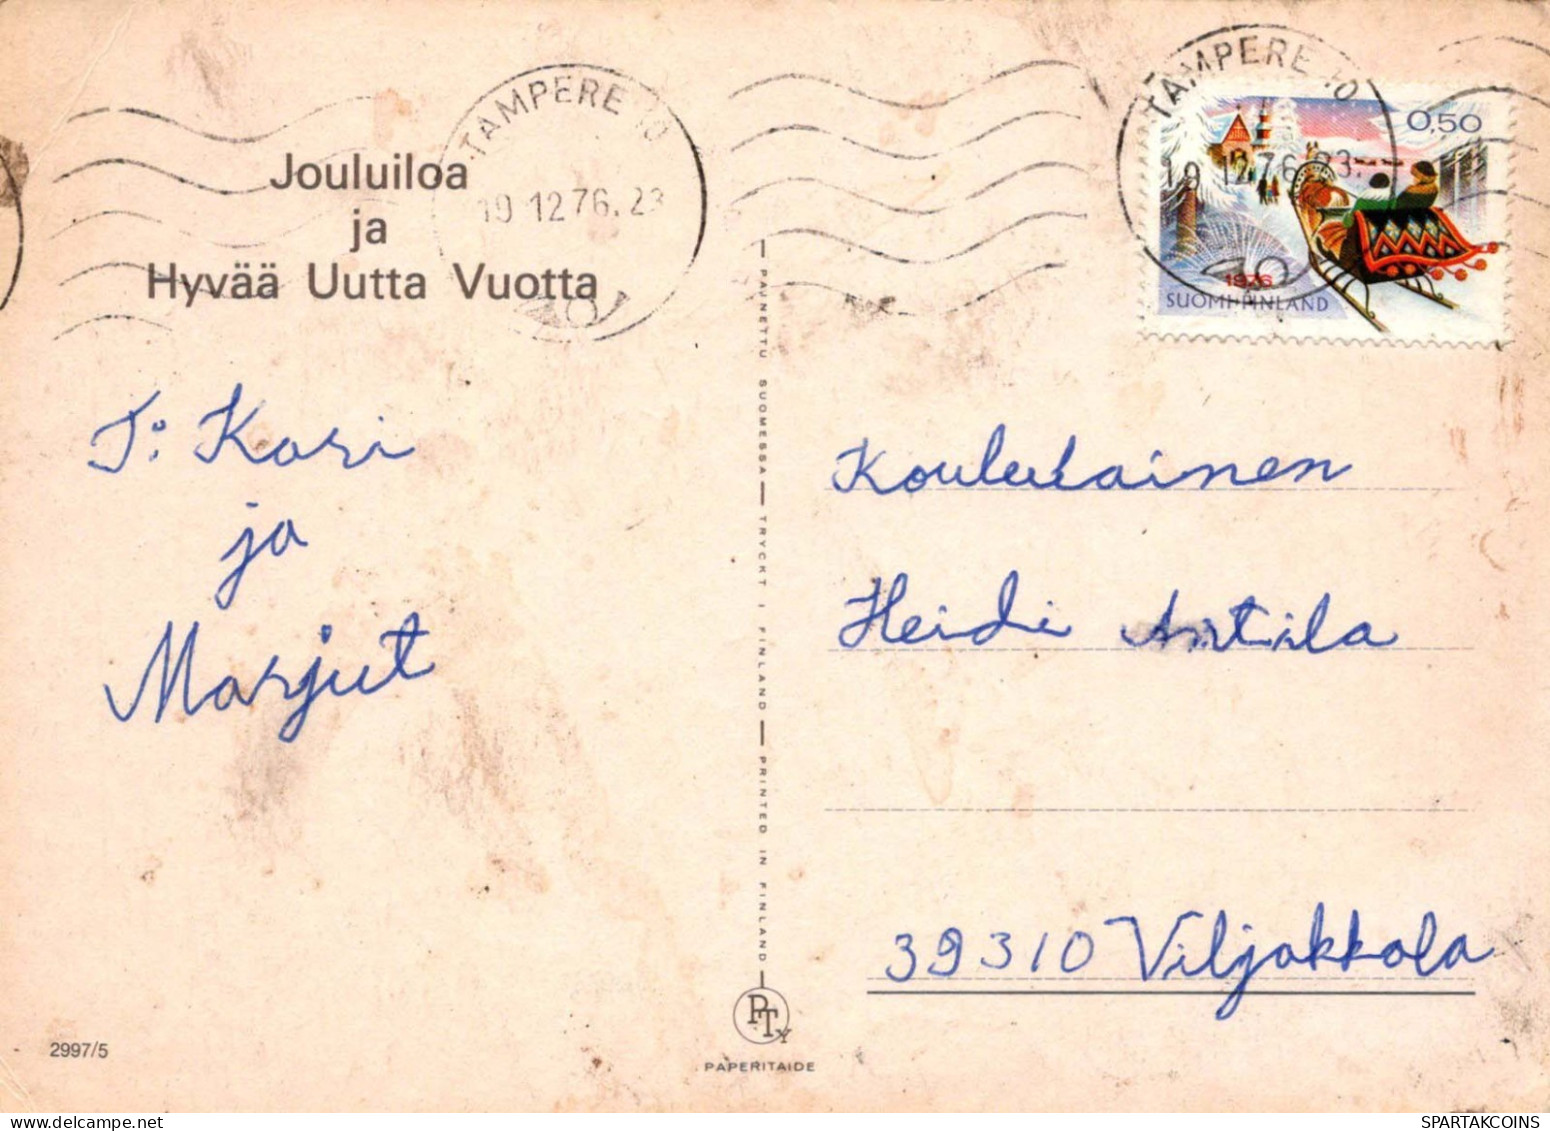 TAMPERE 10
19.12.76.23
TAMPERE 10
19.12.76.23
0,50
1976
SUOMI-FINLAND
Jouluiloa
ja
Hyvää Uutta Vuotta
T: Kari
ja
Marjut
PAINETTU SUOMESSA — TRYCKT I FINLAND — PRINTED IN FINLAND
Koululainen
Heidi Antila
39310 Viljakkala
PTy
PAPERITAIDE
2997/5
SPARTAKCOINS